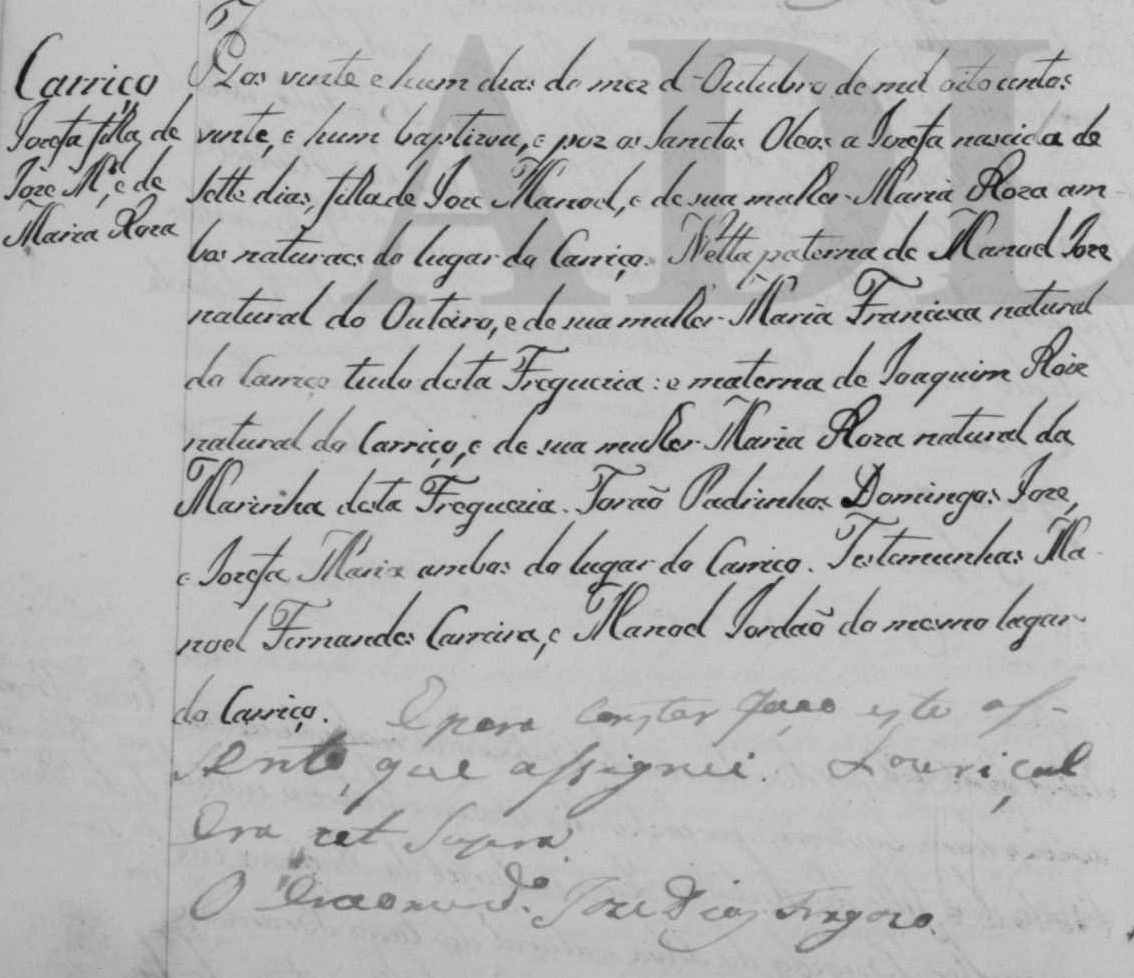 Carriço
Jozefa filha de
Joze M.el, e de
Maria Roza
Aos vinte e hum dias do mez d'Outubro de mil oito centos
vinte, e hum baptizou, e poz os Sanctos Oleos a Jozefa nascida de
sette dias, filha de Joze Manoel, e de sua mulher Maria Roza am-
bos naturaes do lugar do Carriço. Netta paterna de Manoel Joze
natural do Outeiro, e de sua mulher Maria Francisca natural
do Carriço tudo desta Freguezia: e materna de Joaquim Roiz
natural do Carriço, e de sua mulher Maria Roza natural da
Marinha desta Freguezia. Forão Padrinhos Domingos Joze,
e Jozefa Maria ambos do lugar do Carriço. Testemunhas Ma-
noel Fernandes Carreira, e Manoel Jordão do mesmo lugar
do Carriço. E para constar faço este as-
sento, que assignei. Louriçal
Era ut supra.
O Joze Dias Fragozo.
ADL